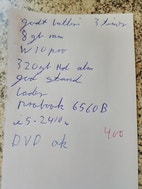 godt batteri 3 timer
8 gb ram
W10 pro
320 gb Hd
god stand
Lader
Probook 6560B
i5-2410m
DVD ok
400